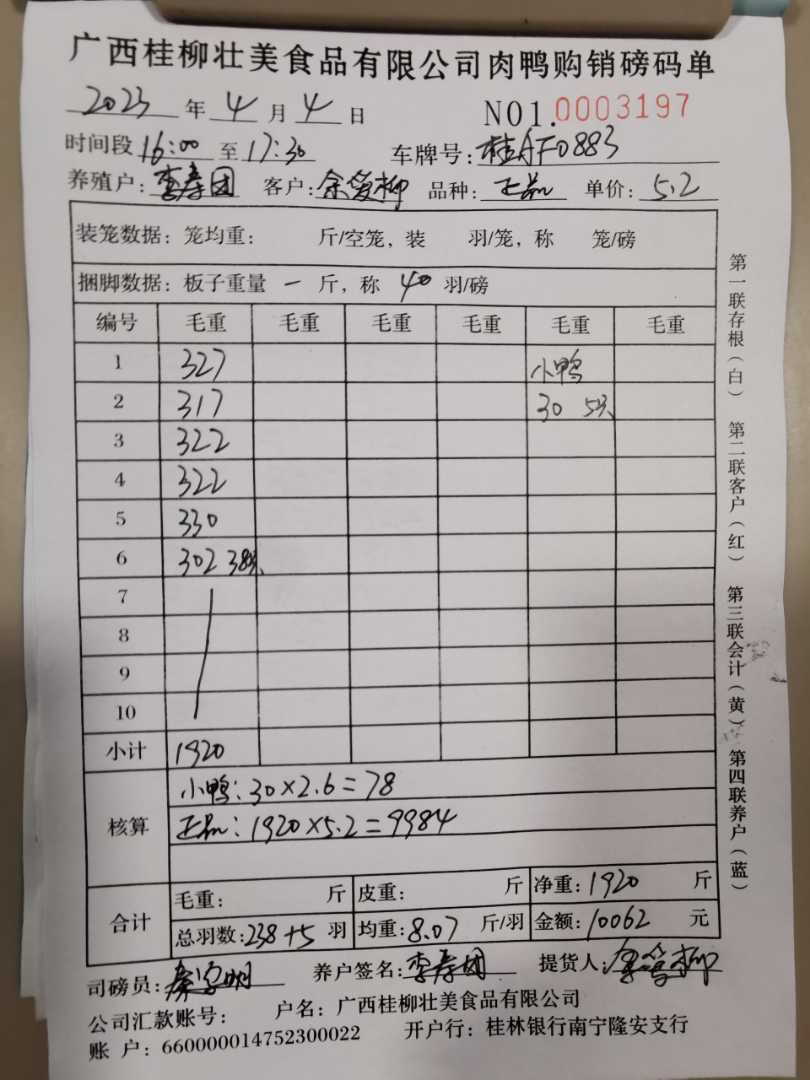 广西桂柳壮美食品有限公司肉鸭购销磅码单
2023 年 4 月 4 日 NO1.0003197
时间段 16:00 至 17:30 车牌号: 桂AF0883
养殖户: 李寿团 客户: 余爱柳 品种: 正品 单价: 5.2
装笼数据: 笼均重: 斤/空笼, 装 羽/笼, 称 笼/磅
捆脚数据: 板子重量 一 斤, 称 40 羽/磅
编号 毛重 毛重 毛重 毛重 毛重 毛重
1 327 小鸭
2 317 30 5只
3 322
4 322
5 330
6 302 38只
7
8
9
10
小计 1920
核算 小鸭: 30×2.6=78
正品: 1920×5.2=9984
合计 毛重: 斤 皮重: 斤 净重: 1920 斤
总羽数: 238+5 羽 均重: 8.07 斤/羽 金额: 10062 元
司磅员: 养户签名: 李寿团 提货人: 余爱柳
公司汇款账号: 户名: 广西桂柳壮美食品有限公司
账 户: 660000014752300022 开户行: 桂林银行南宁隆安支行
第一联存根(白) 第二联客户(红) 第三联会计(黄) 第四联养户(蓝)